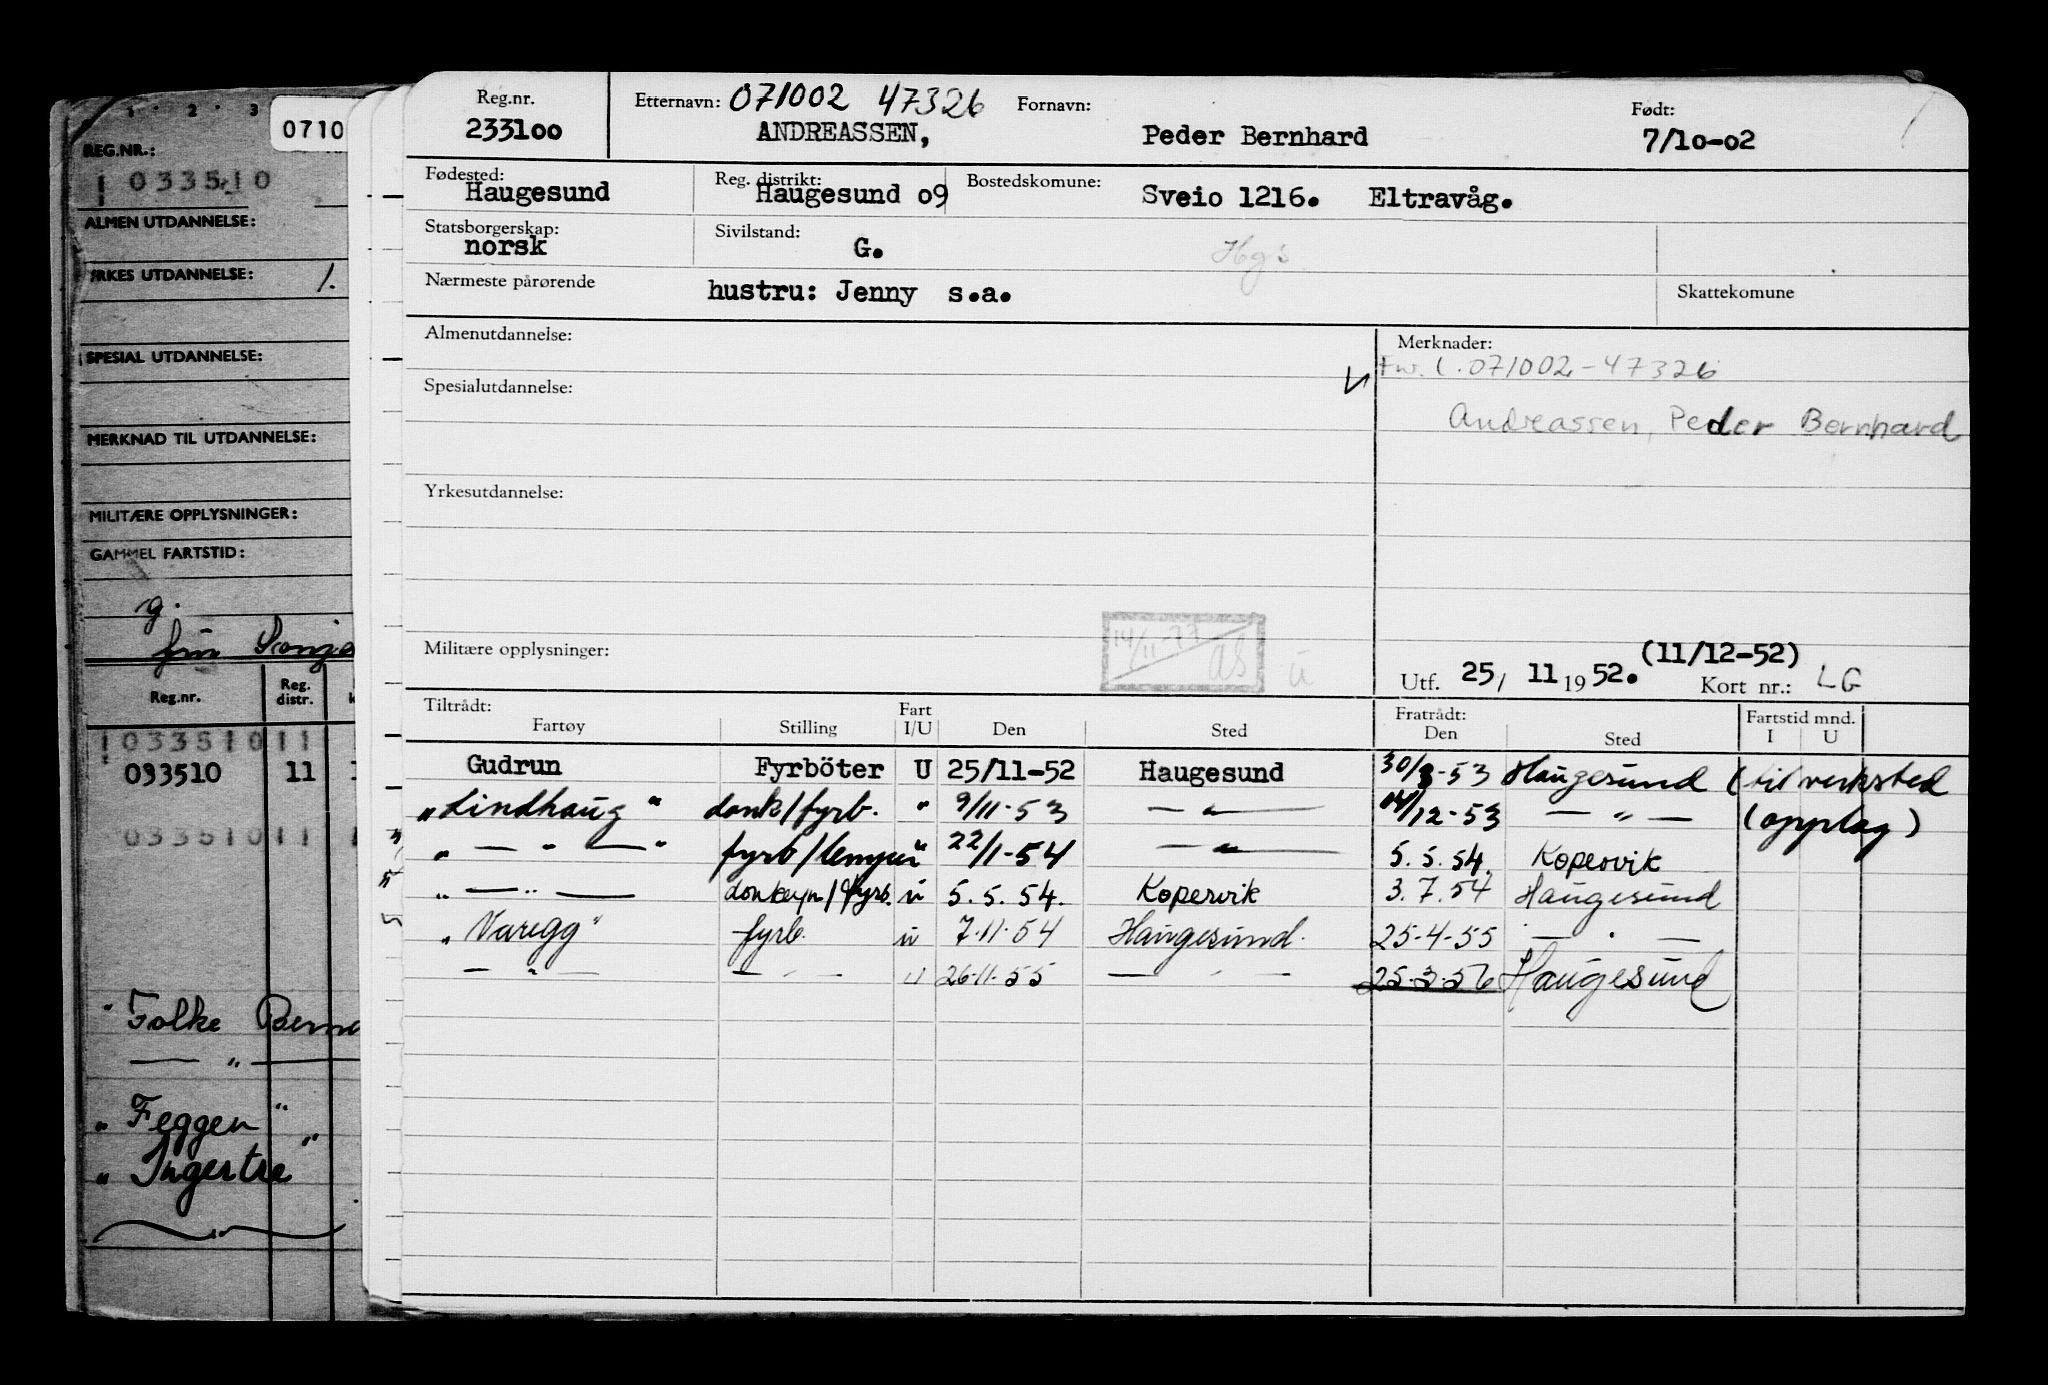 1 2 3
0710
REG.NR.:
033510
ALMEN UTDANNELSE:
YRKES UTDANNELSE: 1.
SPESIAL UTDANNELSE:
MERKNAD TIL UTDANNELSE:
MILITÆRE OPPLYSNINGER:
GAMMEL FARTSTID:
g.
Reg.nr. Reg. distr.
033510 11
093510 11
033510 11
"Folke Bern
— " —
"Feggen"
"Ingertre"
Reg.nr. Etternavn: 071002 47326 Fornavn: Født:
233100 ANDREASSEN, Peder Bernhard 7/10-02
Fødested: Reg. distrikt: Bostedskomune:
Haugesund Haugesund 09 Sveio 1216. Eltravåg.
Statsborgerskap: Sivilstand:
norsk G. Hgs
Nærmeste pårørende hustru: Jenny s.a. Skattekomune
Almenutdannelse: Merknader:
071002-47326
Spesialutdannelse:
Andreassen, Peder Bernhard
Yrkesutdannelse:
14/11-77
Militære opplysninger: (11/12-52)
Utf. 25, 11 1952. Kort nr.: LG
Tiltrådt: Fart Fratrådt: Fartstid mnd.
Fartøy Stilling I/U Den Sted Den Sted I U
Gudrun Fyrböter U 25/11-52 Haugesund 30/3-53 Haugesund (til verksted
"Lindhaug" donk/fyrb. " 9/11-53 — " — 14/12-53 — " — (opplag)
" — " — " fyrb/lemper 22/1-54 — " — 5.5.54. Kopervik
" — " — donkeym/fyrb. u 5.5.54. Kopervik 3.7.54 Haugesund
"Varegg" fyrb. u 7.11.54 Haugesund. 25-4-55 — " —
— " — — " — u 26.11.55 — " — 25-3-56 Haugesund